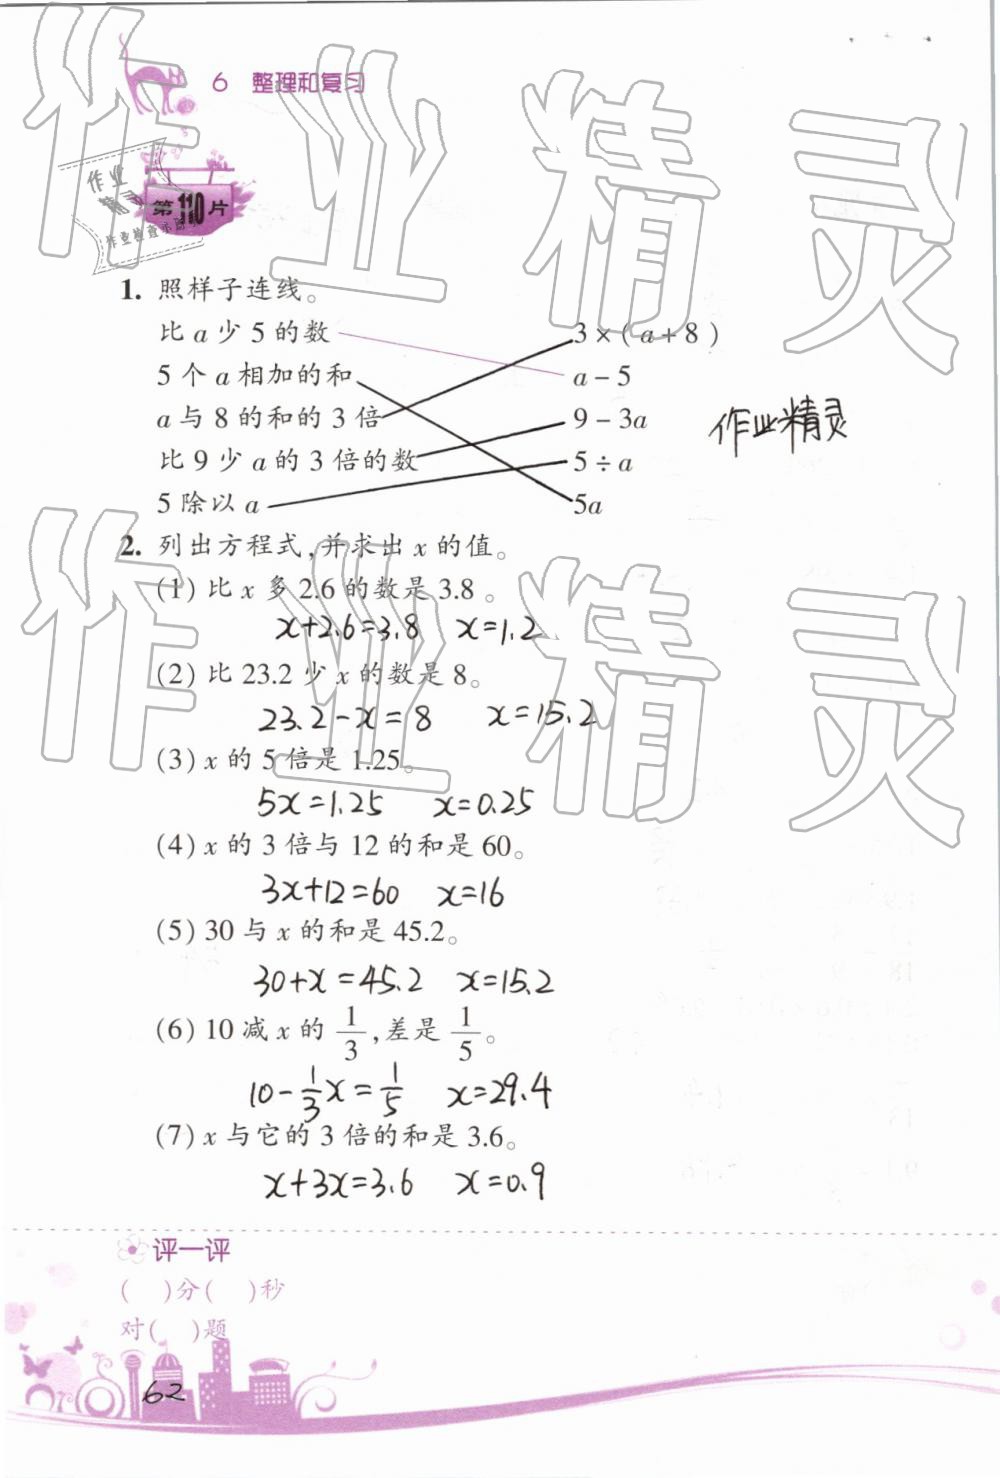 6 整理和复习
第110片
作业精灵
作业检查小助手
1. 照样子连线。
比 a 少 5 的数 3×(a+8)
5 个 a 相加的和 a-5
a 与 8 的和的 3 倍 9-3a
比 9 少 a 的 3 倍的数 5÷a
5 除以 a 5a
作业精灵
2. 列出方程式,并求出 x 的值。
(1) 比 x 多 2.6 的数是 3.8 。
x+2.6=3.8 x=1.2
(2) 比 23.2 少 x 的数是 8。
23.2-x=8 x=15.2
(3) x 的 5 倍是 1.25。
5x=1.25 x=0.25
(4) x 的 3 倍与 12 的和是 60。
3x+12=60 x=16
(5) 30 与 x 的和是 45.2。
30+x=45.2 x=15.2
(6) 10 减 x 的 1/3 ,差是 1/5 。
10-1/3x=1/5 x=29.4
(7) x 与它的 3 倍的和是 3.6。
x+3x=3.6 x=0.9
评一评
( )分( )秒
对( )题
62
作业精灵
作业精灵